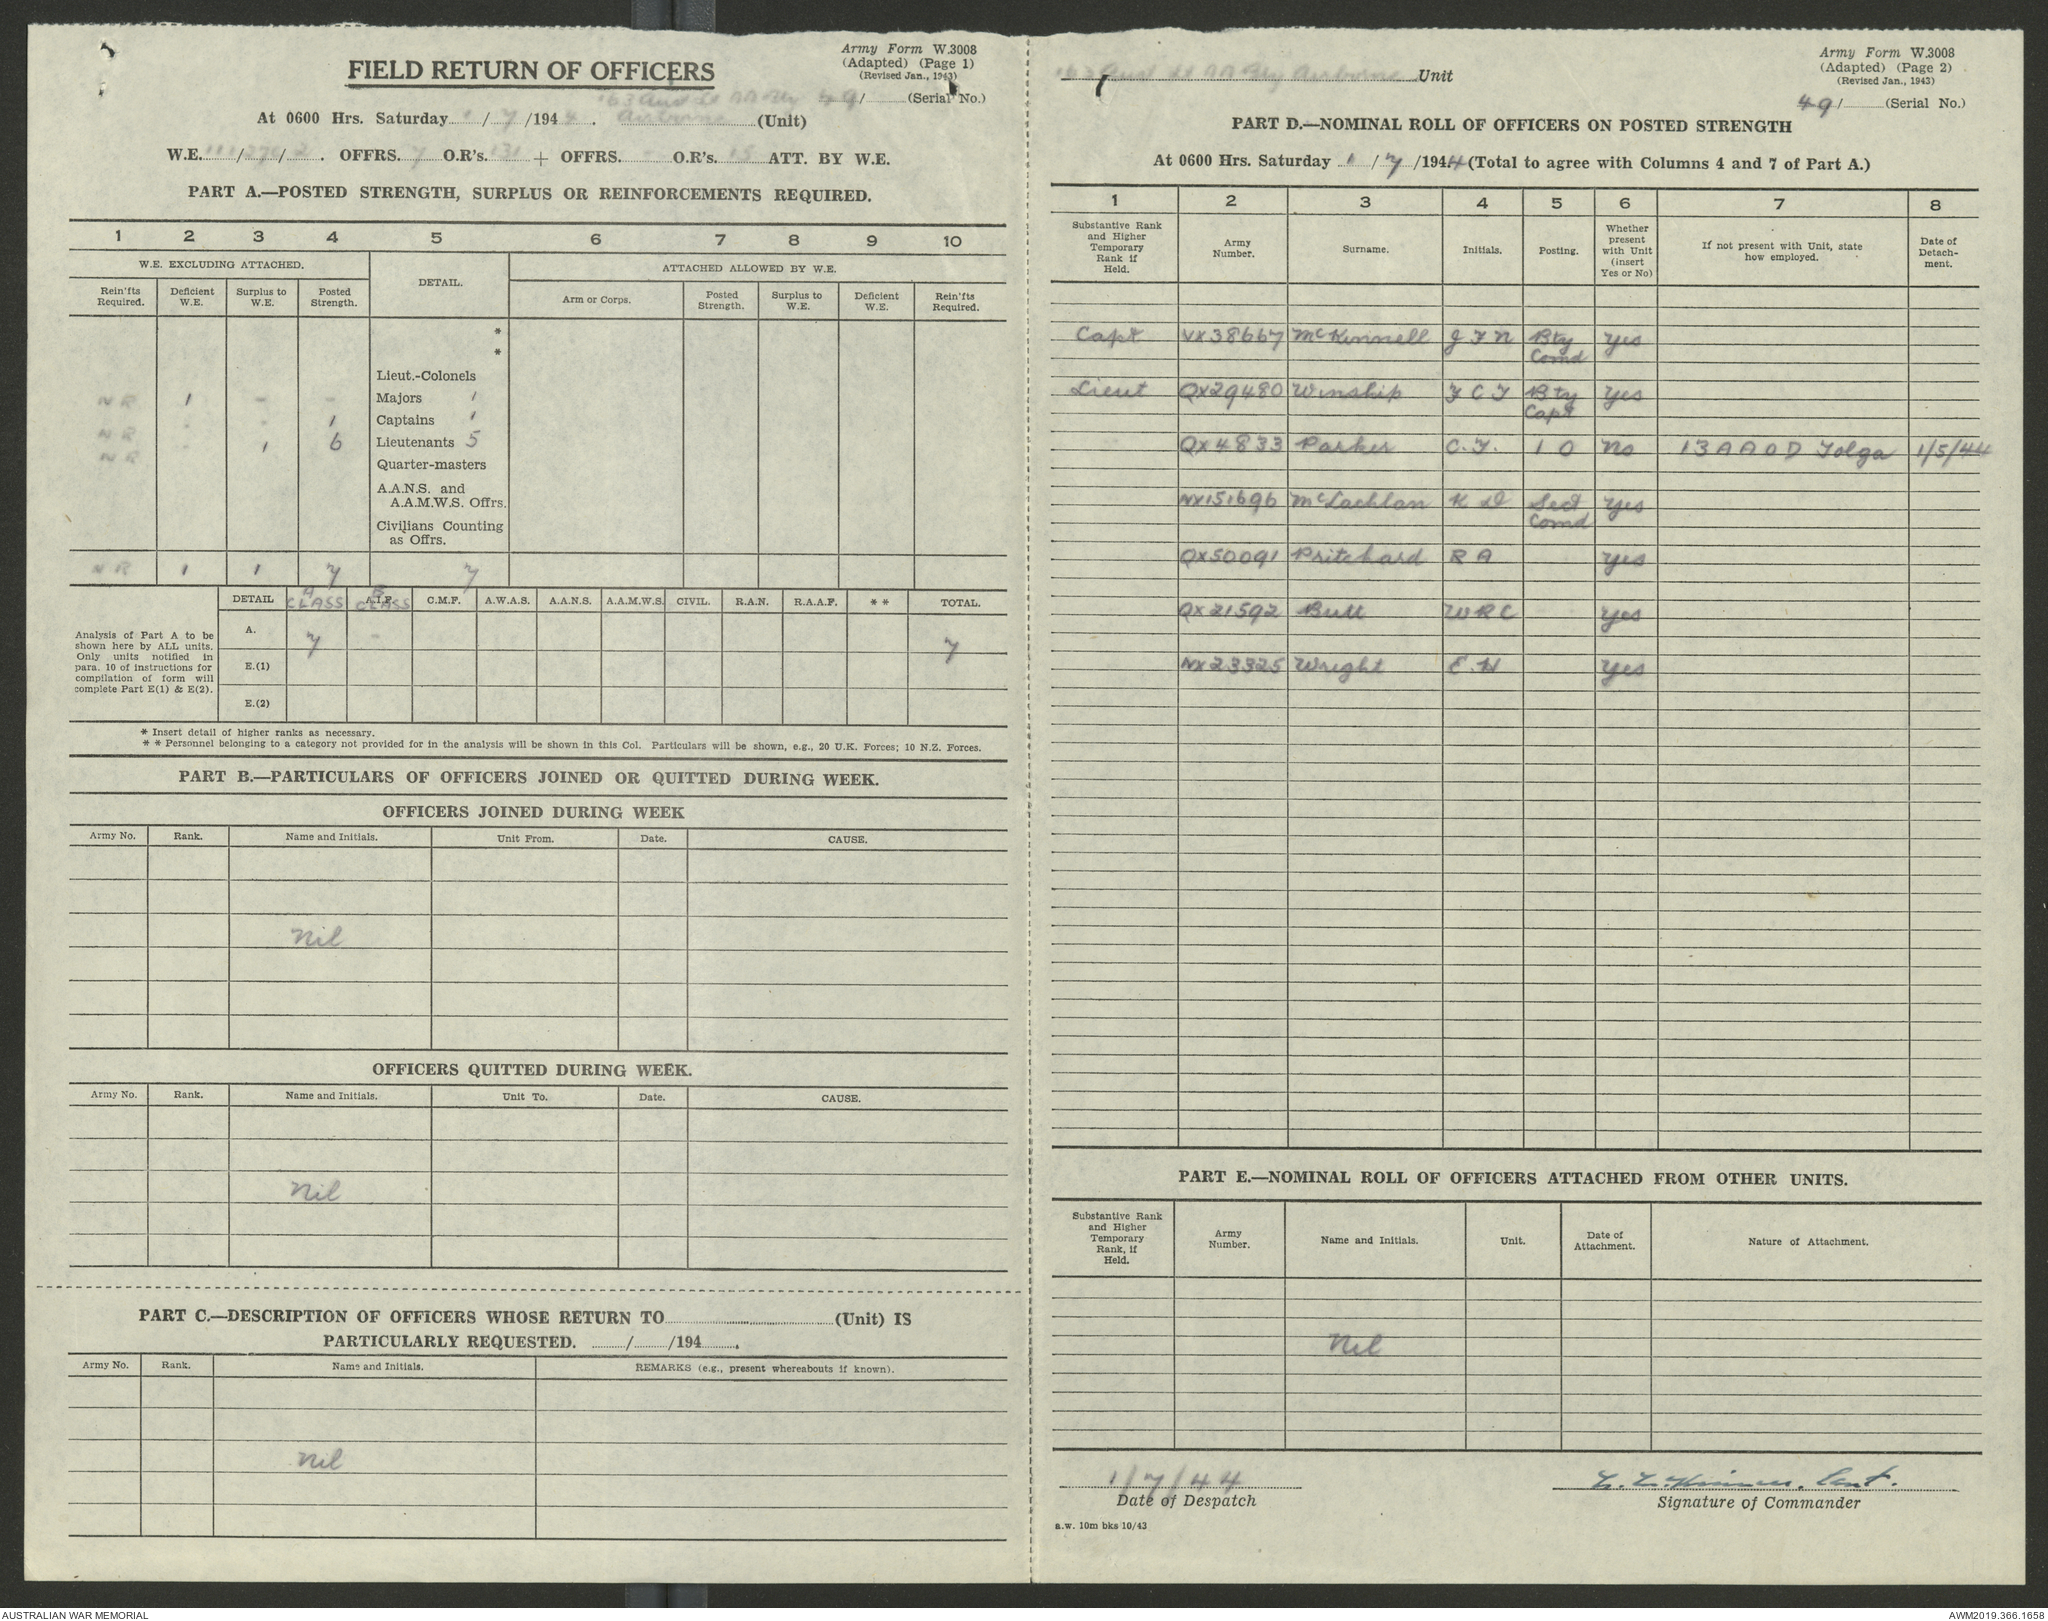 Army Form W.3008
(Adapted) (Page 1)
(Revised Jan., 1943)
FIELD RETURN OF OFFICERS
163 Aust Lt AA Bty 49/ (Serial No.)
At 0600 Hrs. Saturday 1/7/1944. Airborne (Unit)
W.E. 111/276/2. OFFRS. 7 O.R's. 131 + OFFRS. - O.R's. 15 ATT. BY W.E.
PART A.—POSTED STRENGTH, SURPLUS OR REINFORCEMENTS REQUIRED.
1 2 3 4 5 6 7 8 9 10
W.E. EXCLUDING ATTACHED. DETAIL. ATTACHED ALLOWED BY W.E.
Rein'fts Required. Deficient W.E. Surplus to W.E. Posted Strength. Arm or Corps. Posted Strength. Surplus to W.E. Deficient W.E. Rein'fts Required.
*
*
Lieut.-Colonels
NR 1 - - Majors 1
NR - - 1 Captains 1
NR - 1 6 Lieutenants 5
Quarter-masters
A.A.N.S. and
A.A.M.W.S. Offrs.
Civilians Counting
as Offrs.
NR 1 1 7 7
DETAIL A CLASS A.I.F. B CLASS C.M.F. A.W.A.S. A.A.N.S. A.A.M.W.S. CIVIL. R.A.N. R.A.A.F. * * TOTAL.
Analysis of Part A to be
shown here by ALL units.
Only units notified in
para. 10 of instructions for
compilation of form will
complete Part E(1) & E(2).
A. 7 - 7
E.(1)
E.(2)
* Insert detail of higher ranks as necessary.
* * Personnel belonging to a category not provided for in the analysis will be shown in this Col. Particulars will be shown, e.g., 20 U.K. Forces; 10 N.Z. Forces.
PART B.—PARTICULARS OF OFFICERS JOINED OR QUITTED DURING WEEK.
OFFICERS JOINED DURING WEEK
Army No. Rank. Name and Initials. Unit From. Date. CAUSE.
Nil
OFFICERS QUITTED DURING WEEK.
Army No. Rank. Name and Initials. Unit To. Date. CAUSE.
Nil
PART C.—DESCRIPTION OF OFFICERS WHOSE RETURN TO (Unit) IS
PARTICULARLY REQUESTED. / /194 .
Army No. Rank. Name and Initials. REMARKS (e.g., present whereabouts if known).
Nil
Army Form W.3008
(Adapted) (Page 2)
(Revised Jan., 1943)
163 Aust Lt AA Bty Airborne Unit
49/ (Serial No.)
PART D.—NOMINAL ROLL OF OFFICERS ON POSTED STRENGTH
At 0600 Hrs. Saturday 1/7/1944 (Total to agree with Columns 4 and 7 of Part A.)
1 2 3 4 5 6 7 8
Substantive Rank and Higher Temporary Rank if Held. Army Number. Surname. Initials. Posting. Whether present with Unit (insert Yes or No) If not present with Unit, state how employed. Date of Detach-ment.
Capt VX38667 McKinnell J F N Bty Comd Yes
Lieut QX29480 Winship F C F Bty Capt Yes
QX4833 Parker C.F. I O No 13 A A O D Tolga 1/5/44
NX151696 McLachlan K D Sect Comd Yes
QX50091 Pritchard R A Yes
QX21592 Butt W R C Yes
NX23325 Wright E.H Yes
PART E.—NOMINAL ROLL OF OFFICERS ATTACHED FROM OTHER UNITS.
Substantive Rank and Higher Temporary Rank, if Held. Army Number. Name and Initials. Unit. Date of Attachment. Nature of Attachment.
Nil
1/7/44
Date of Despatch
Capt.
Signature of Commander
a.w. 10m bks 10/43
AUSTRALIAN WAR MEMORIAL
AWM2019.366.1658